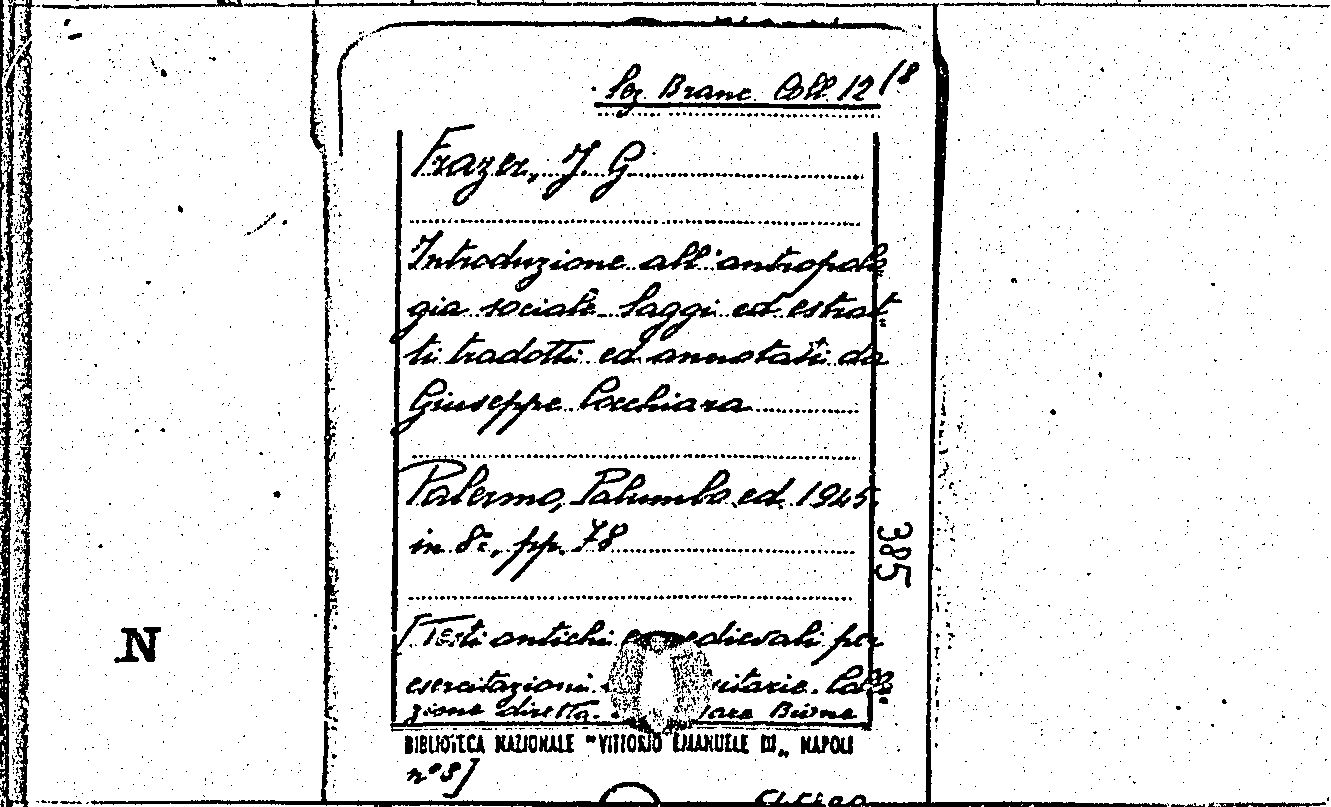 Sez. Branc. Coll. 12 / 8
Frazer, J. G
Introduzione all'antropolo
gia sociale Saggi ed estrat-
ti tradotti ed annotati da
Giuseppe Cocchiara
Palermo, Palumbo ed. 1945.
in 8º, pp. 78
385
[Testi antichi e medievali per
N
esercitazioni
zione diretta Bione
BIBLIOTECA NAZIONALE "VITTORIO EMANUELE III„ NAPOLI
nº 8]